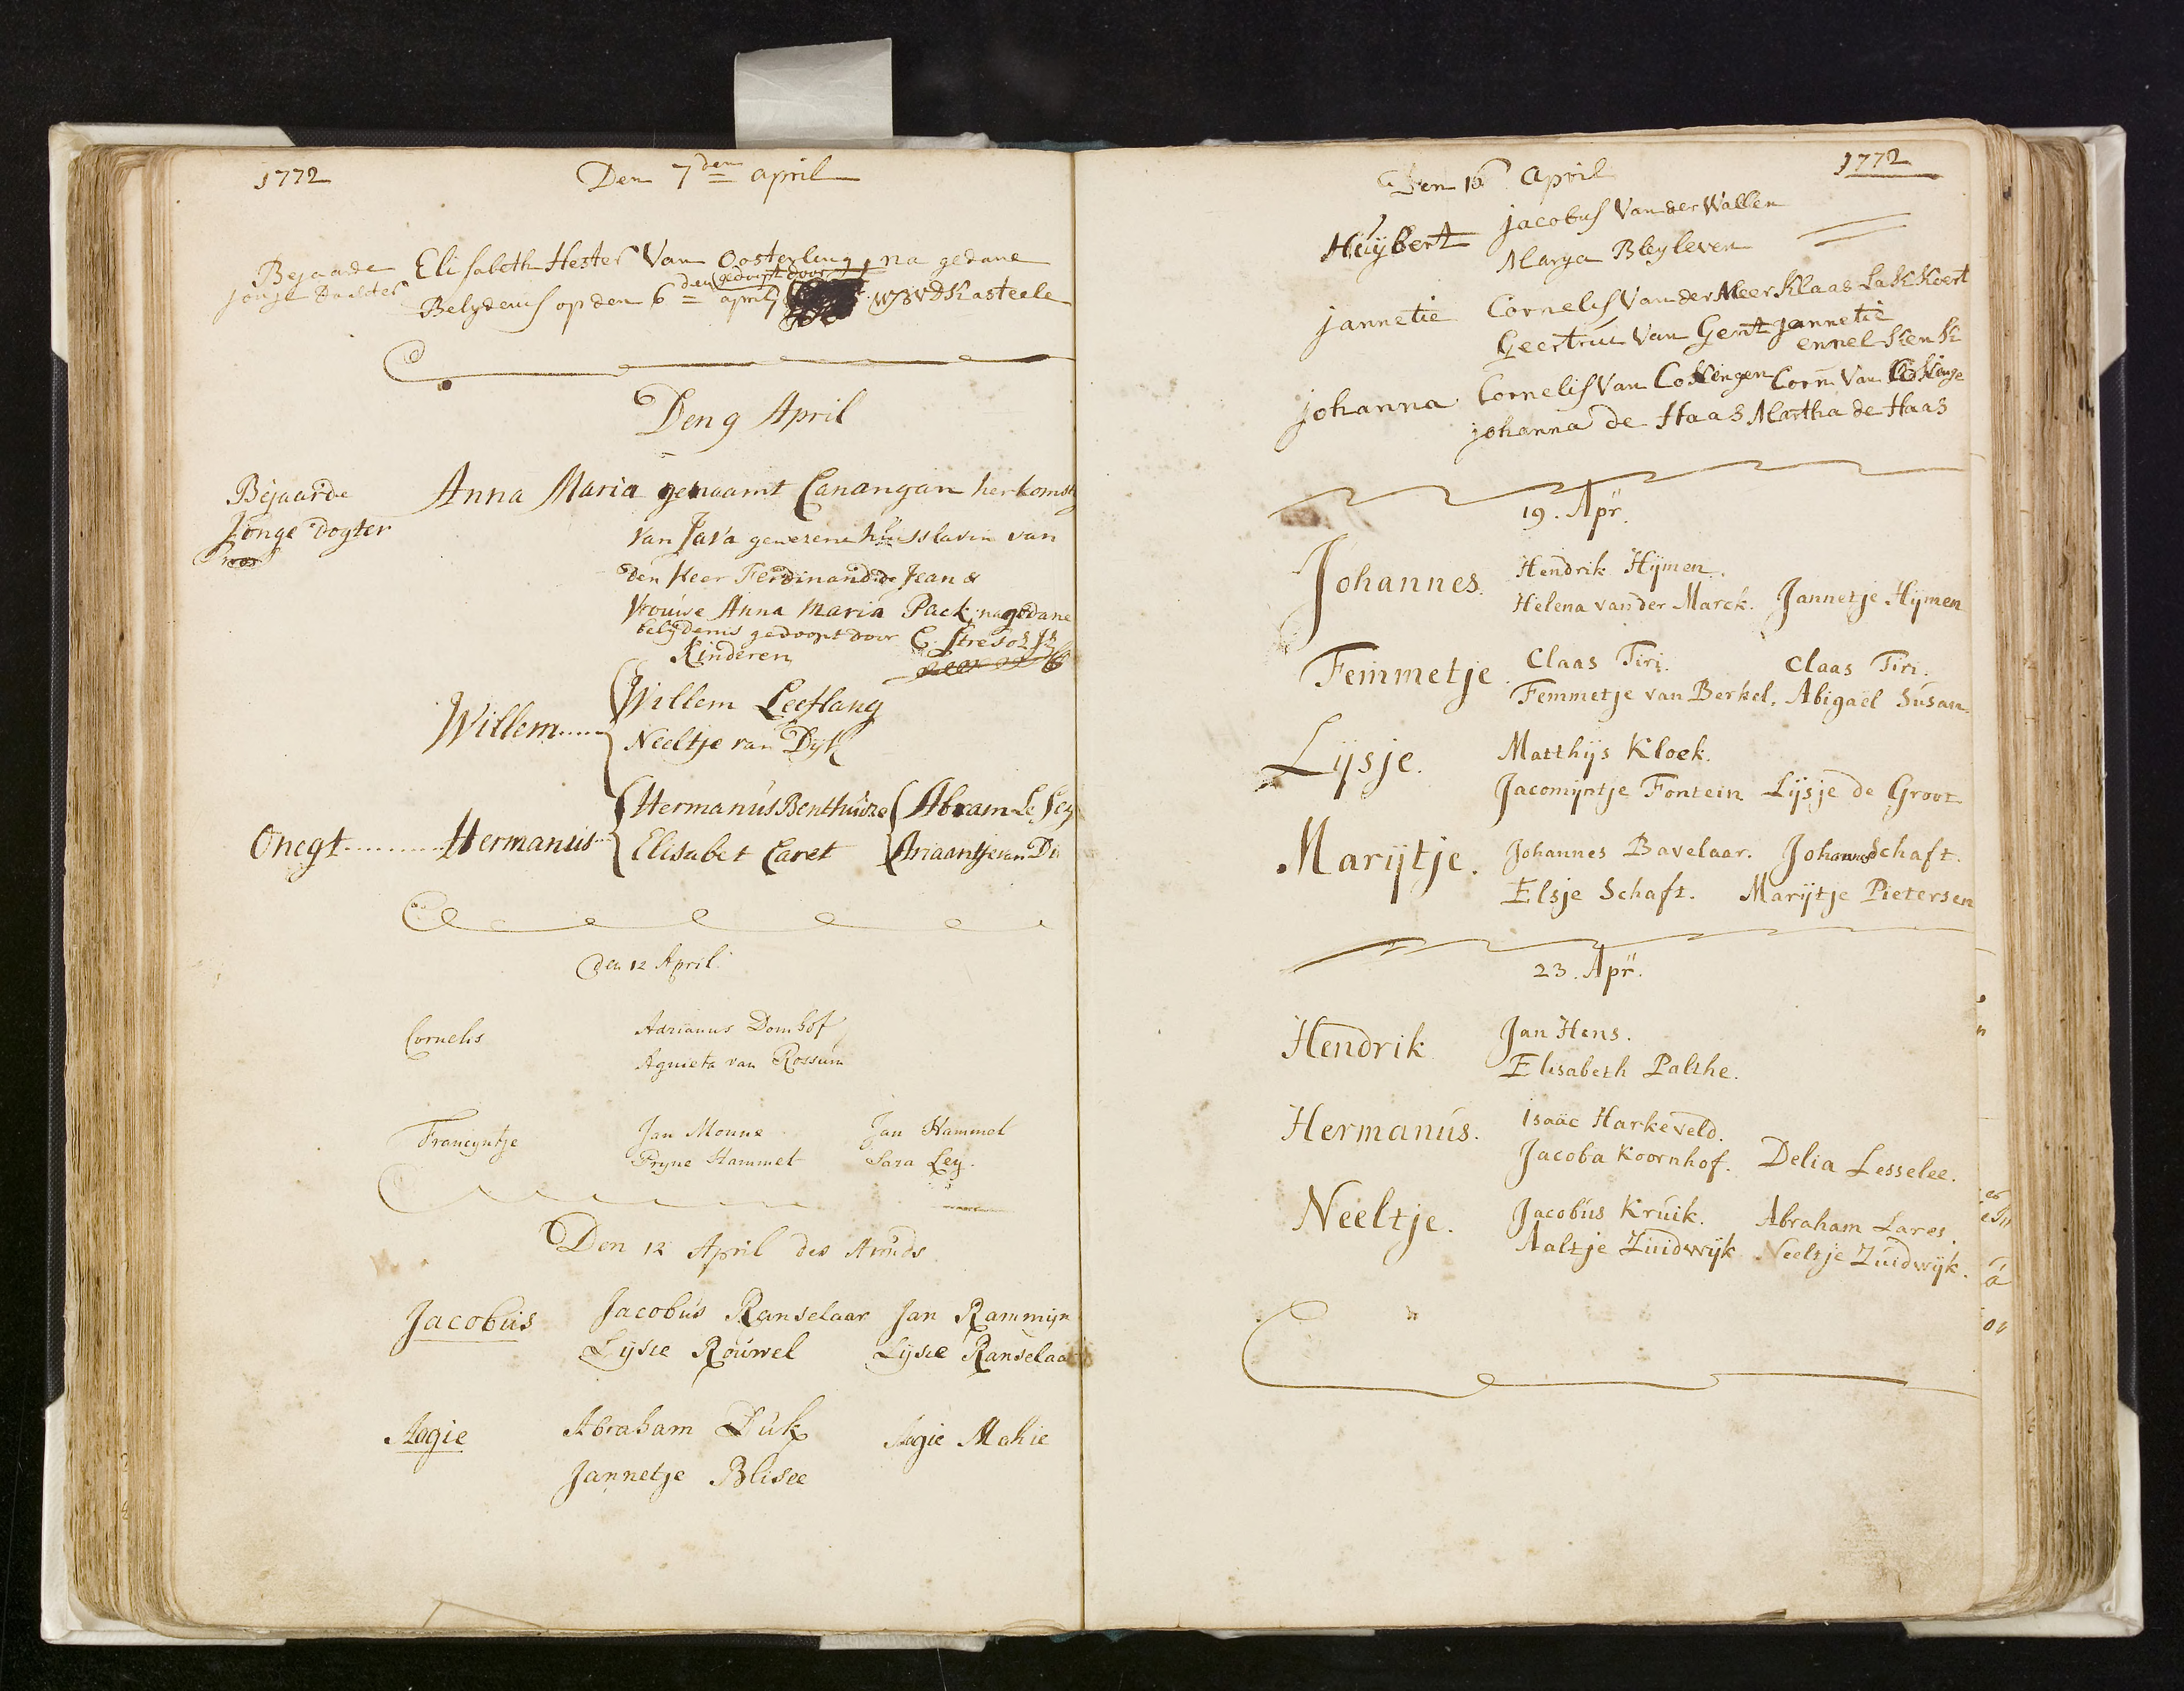 1772
Den 7den april
Bejaarde Elisabeth Hester Van Oosterling, na gedane
jonge Dochter Belydenis op den 6den april gedoopt door WB VD Kasteele
Den 9 April
Bejaarde Anna Maria genaamt Canangan herkomst
Jonge dogter van Java gewesene huisslavin van
den Heer Ferdinand de Jean &
Vrouwe Anna Maria Pack, na gedane
belydenis gedoopt door C. Stresoz
Kinderen
Willem..... Willem Leeflang
Neeltje van Dyk
Onegt.......... Hermanus... Hermanus Benthuize Abram Le Fey
Elisabet Caret Ariaantje van Di
den 12 April
Cornelis Adrianus Domhof
Agnieta van Rossum
Francyntje Jan Monne Jan Hammet
Pryne Hammet Sara Ley.
Den 12 April des Avnds
Jacobus Jacobus Ranselaar Jan Rammijn
Lijsie Rouwel Lijsie Ranselaar
Aagie Abraham Duk Aagie Makie
Jannetje Blisee
Den 15 April 1772
Huijbert jacobus Van der Wallen
Marya Bleyleven
jannetie Cornelis Van der Meer Klaas Lakkoert
Geertrui Van Gent jannetie
ennelken
johanna Cornelis Van Cokkingen Corn. Van Kokkinge
johanna de Haas Martha de Haas
19. Apr.
Johannes. Hendrik Hijmen.
Helena van der Marck. Jannetje Hijmen
Femmetje. Claas Tiri. Claas Tiri.
Femmetje van Berkel. Abigaël Susan.
Lijsje. Matthijs Kloek.
Jacomijntje Fontein Lijsje de Groot
Marijtje. Johannes Bavelaar. Johannes Schaft.
Elsje Schaft. Marijtje Pietersen
23. Apr.
Hendrik Jan Hens.
Elisabeth Palthe.
Hermanus. Isaäc Harkeveld.
Jacoba Koornhof. Delia Lesselee.
Neeltje. Jacobus Kruik. Abraham Lares.
Aaltje Zuidwijk Neeltje Zuidwijk.